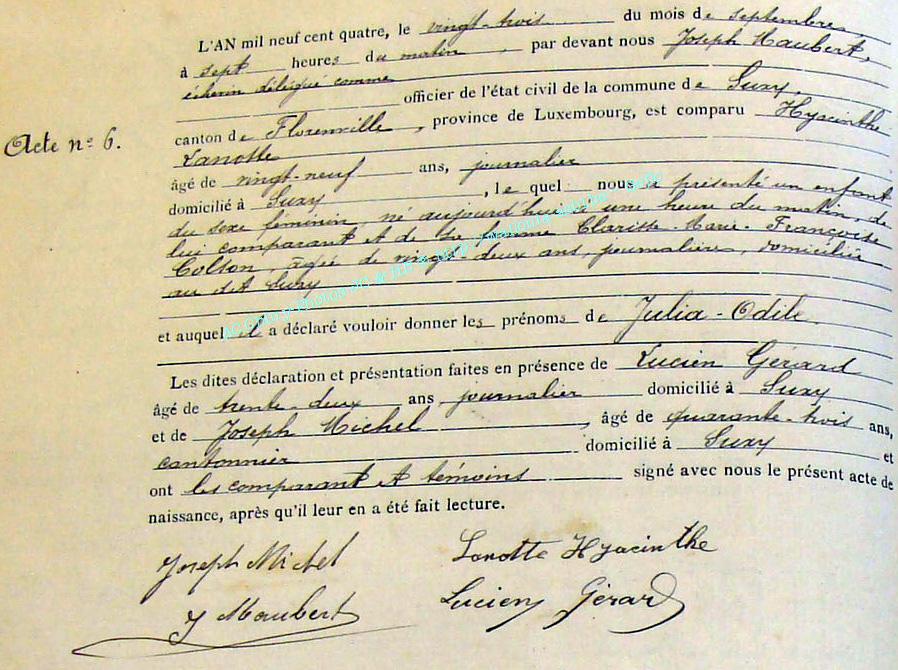 L'AN mil neuf cent quatre, le vingt-trois du mois de septembre,
à sept heures du matin, par devant nous Joseph Maubert,
échevin délégué comme
officier de l'état civil de la commune de Suxy,
Acte nº 6.
canton de Florenville, province de Luxembourg, est comparu Hyacinthe
Lanotte
âgé de vingt-neuf ans, journalier
domicilié à Suxy, le quel nous a présenté un enfant
du sexe féminin, né aujourd'hui à une heure du matin, de
lui comparant et de sa femme Clarisse-Marie-Françoise
Colson, âgée de vingt-deux ans, journalière, domiciliée
au dit Suxy
et auquel il a déclaré vouloir donner les prénoms de Julia-Odile.
Les dites déclaration et présentation faites en présence de Lucien Gérard
âgé de trente-deux ans journalier domicilié à Suxy
et de Joseph Michel, âgé de quarante-trois ans,
cantonnier domicilié à Suxy et
ont les comparant et témoins signé avec nous le présent acte de
naissance, après qu'il leur en a été fait lecture.
Joseph Michel Lanotte Hyacinthe
J Maubert Lucien Gérard